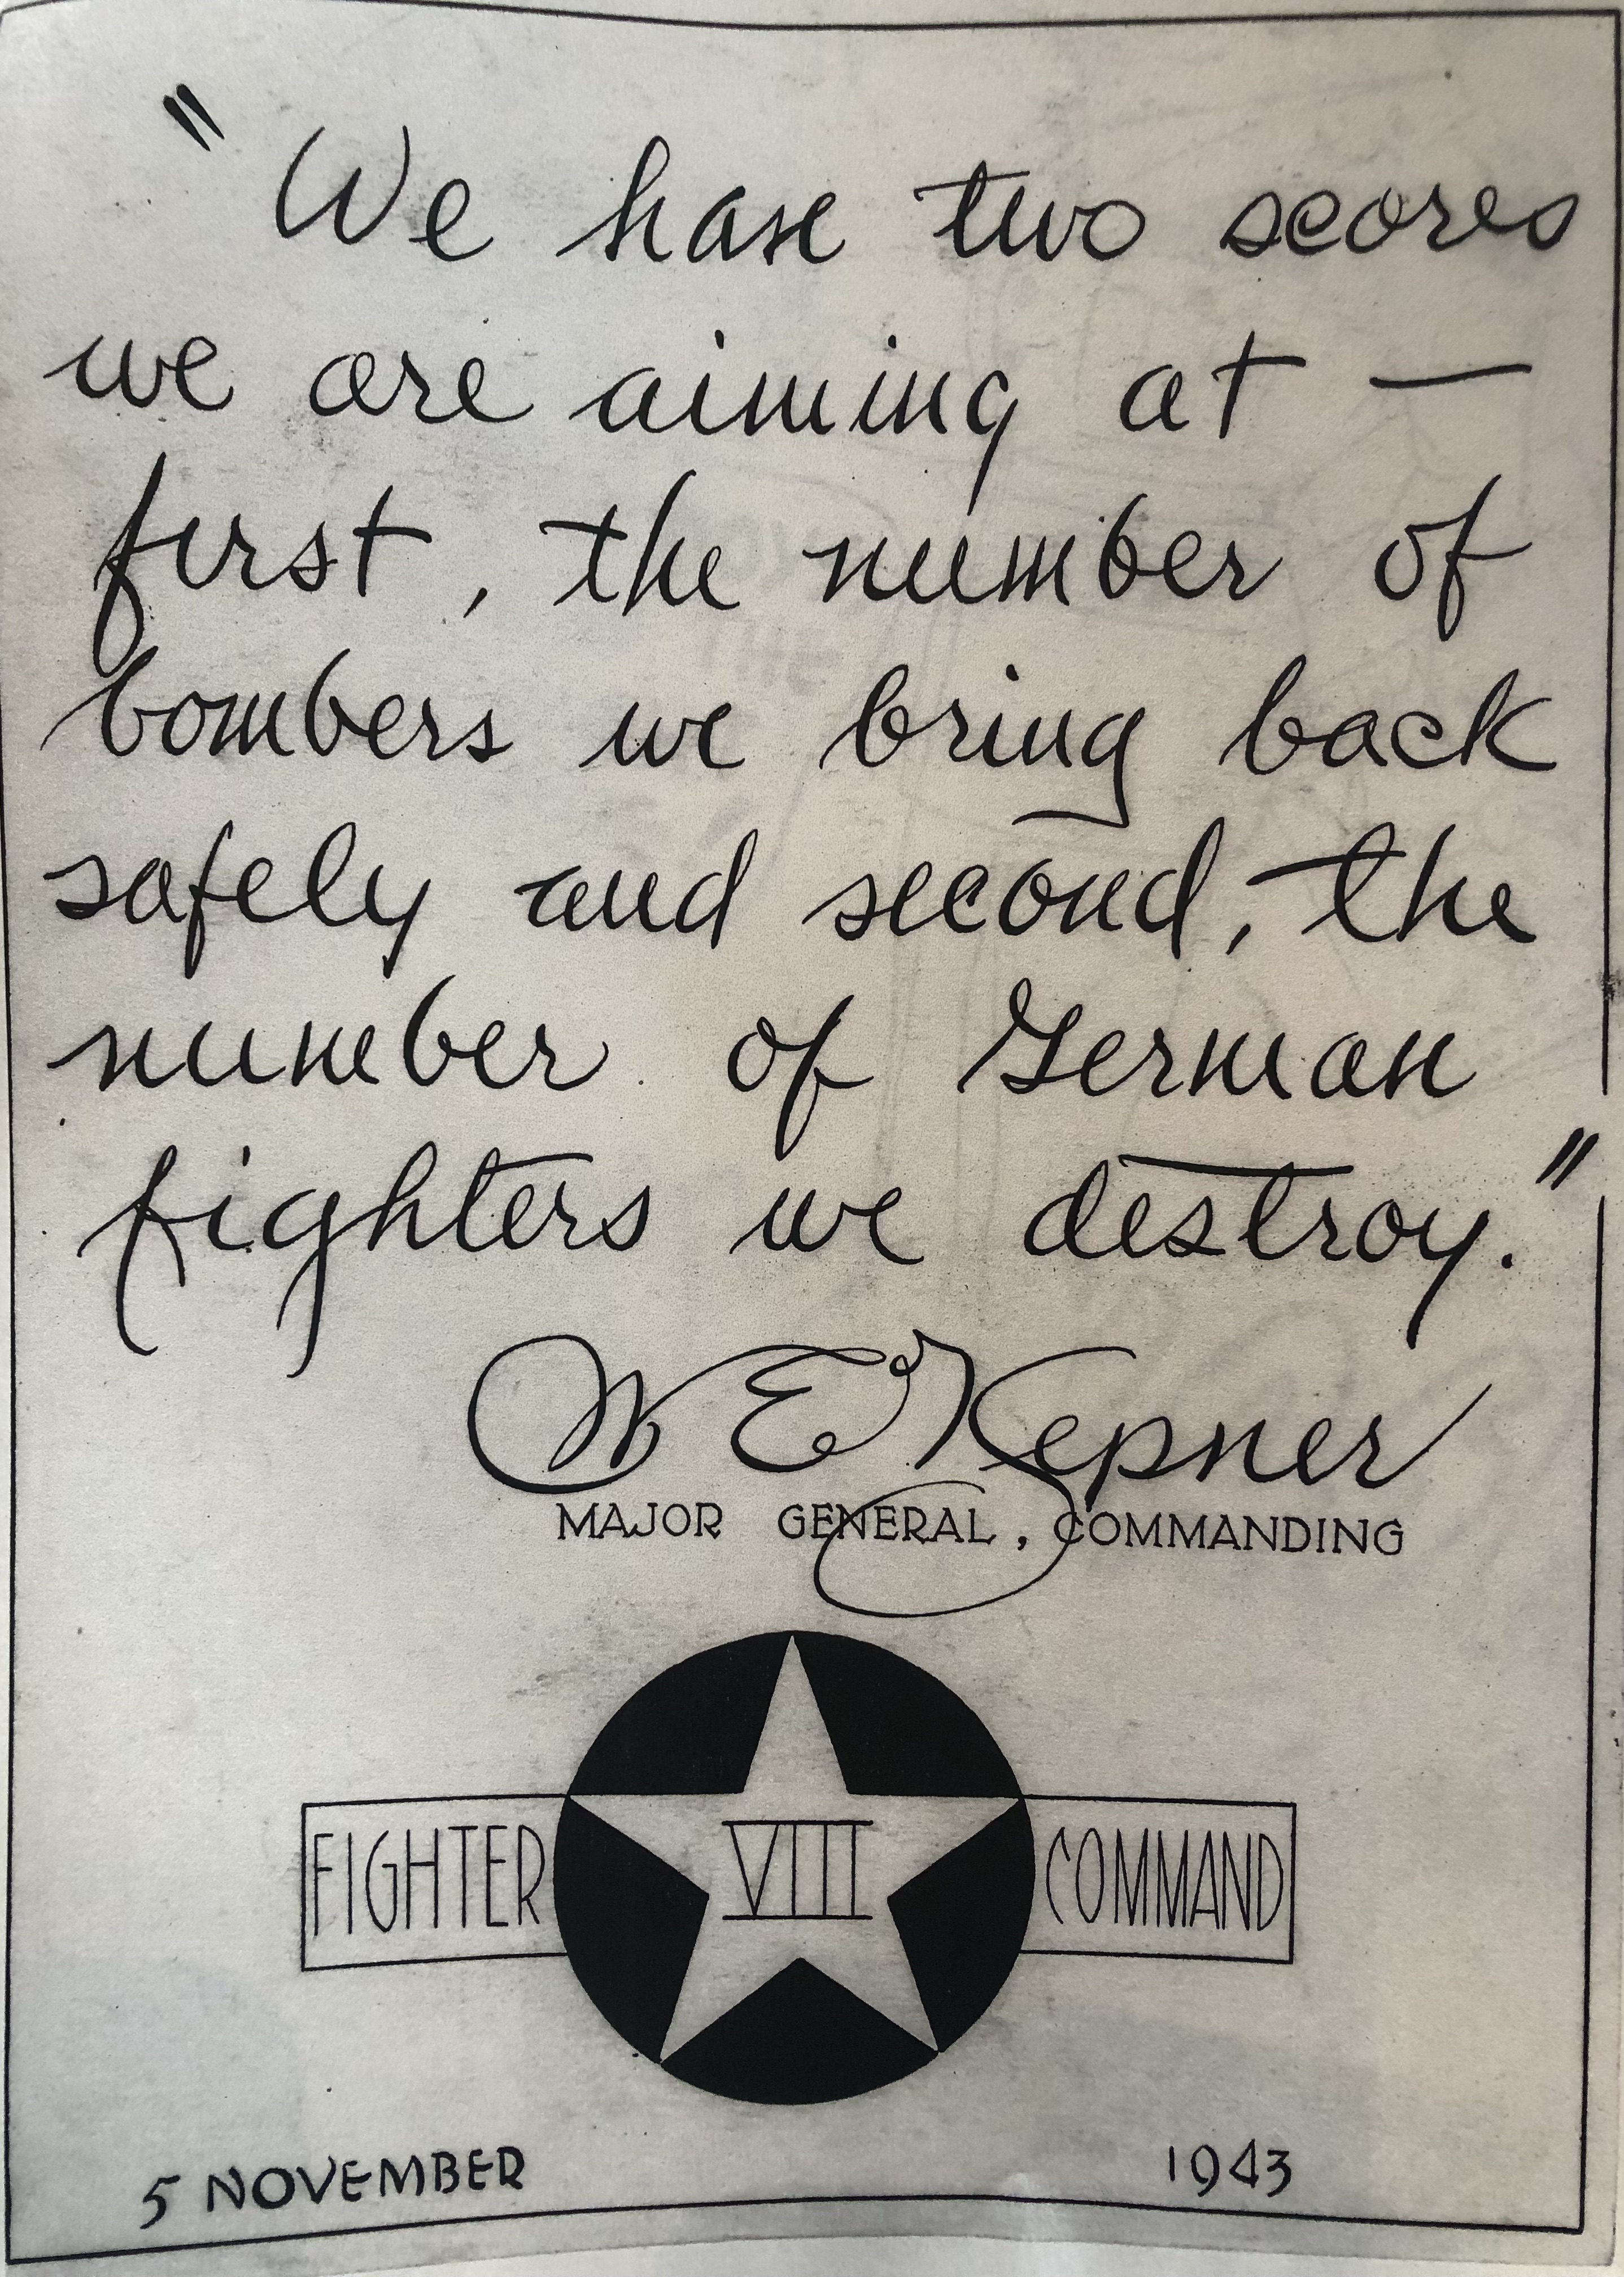 "We have two scores
we are aiming at —
first, the number of
bombers we bring back
safely and second, the
number of German
fighters we destroy."
W E Kepner
MAJOR GENERAL, COMMANDING
FIGHTER VIII COMMAND
5 NOVEMBER 1943